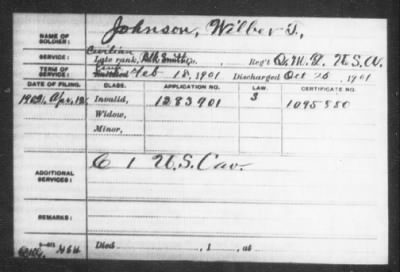 NAME OF SOLDIER: Johnson, Wilber
Civilian
SERVICE: Late rank, Blk Smith, Co. Reg't Q.M.D. U.S.A.
TERM OF SERVICE: Feb 18, 1901 Discharged Oct 26, 1901
DATE OF FILING. CLASS. APPLICATION NO. LAW. CERTIFICATE NO.
1902, Apr. Invalid, 1283901 3 1095580
Widow,
Minor,
ADDITIONAL SERVICES: C 1 U.S. Cav.
REMARKS:
Died , 1 , at